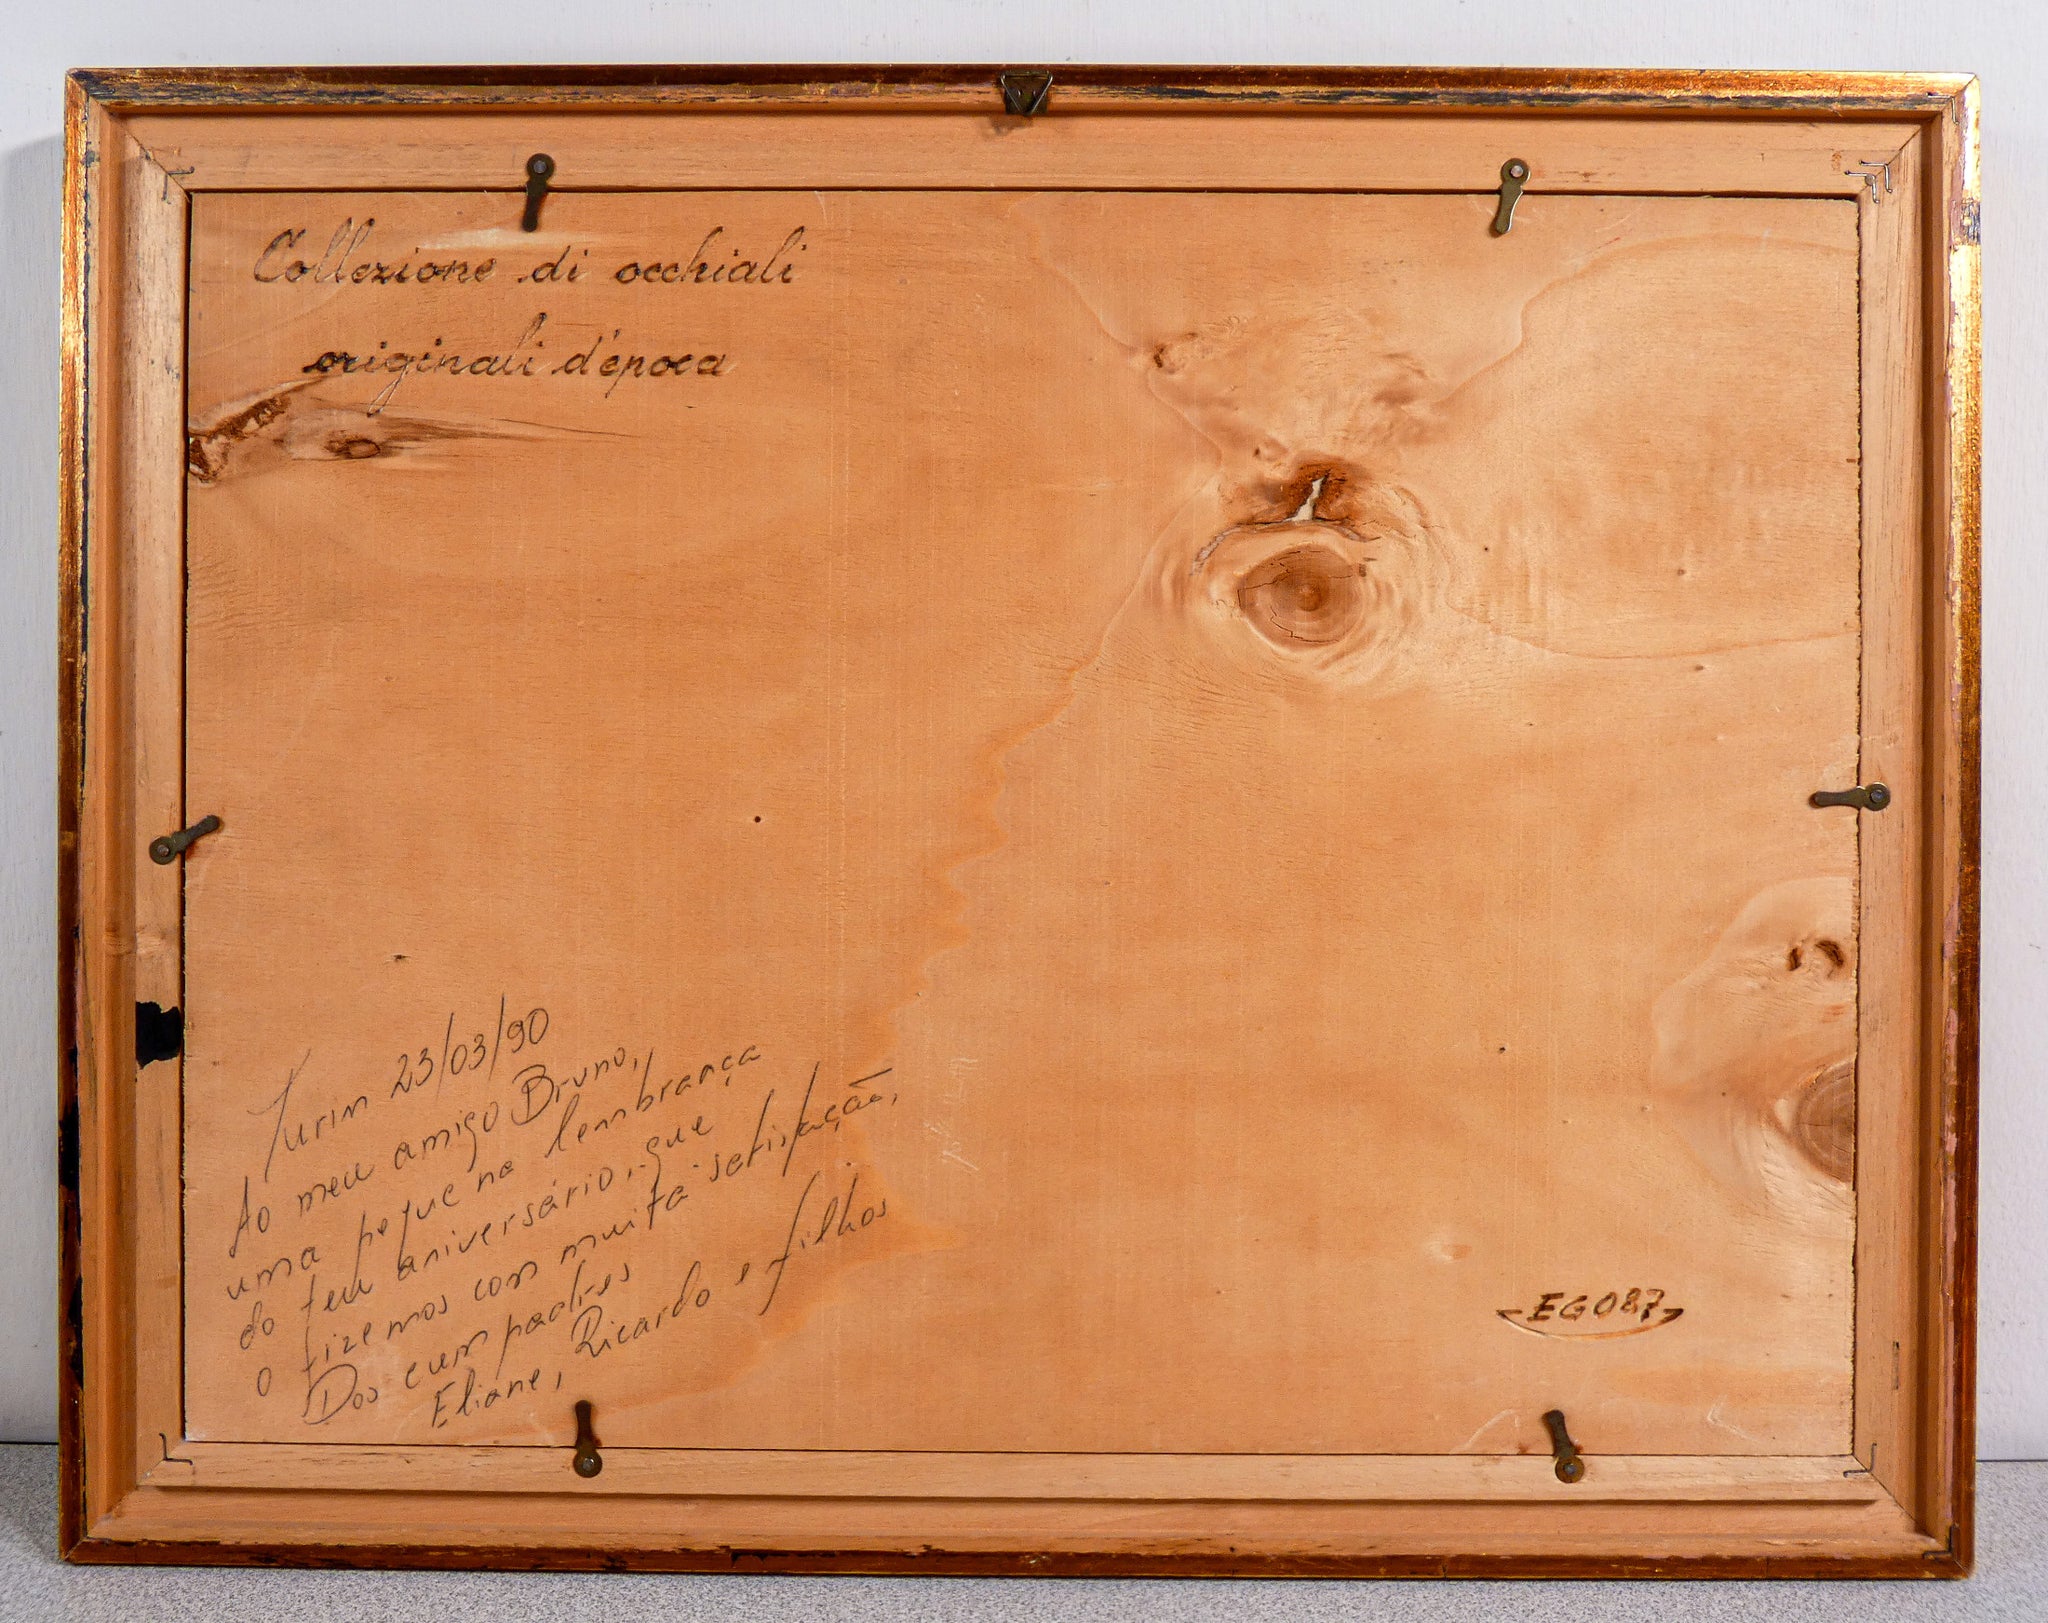 Collezione di occhiali
originali d'epoca
Turim 23/03/90
Ao meu amigo Bruno,
uma pequena lembrança
do teu aniversário, que
o fizemos com muita satisfação,
Dos cumpadres
Eliane, Ricardo e filhos
EGO87